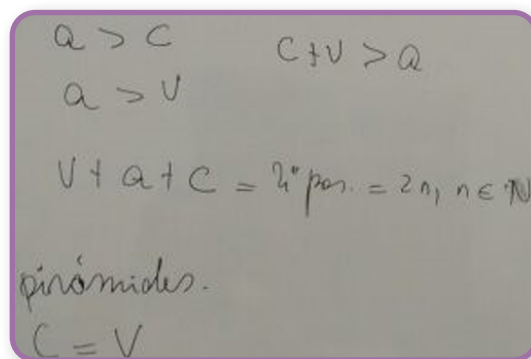 a > c
c + v > a
a > v
v + a + c = nº par. = 2n, n ∈ ℕ
pirámides.
C = V